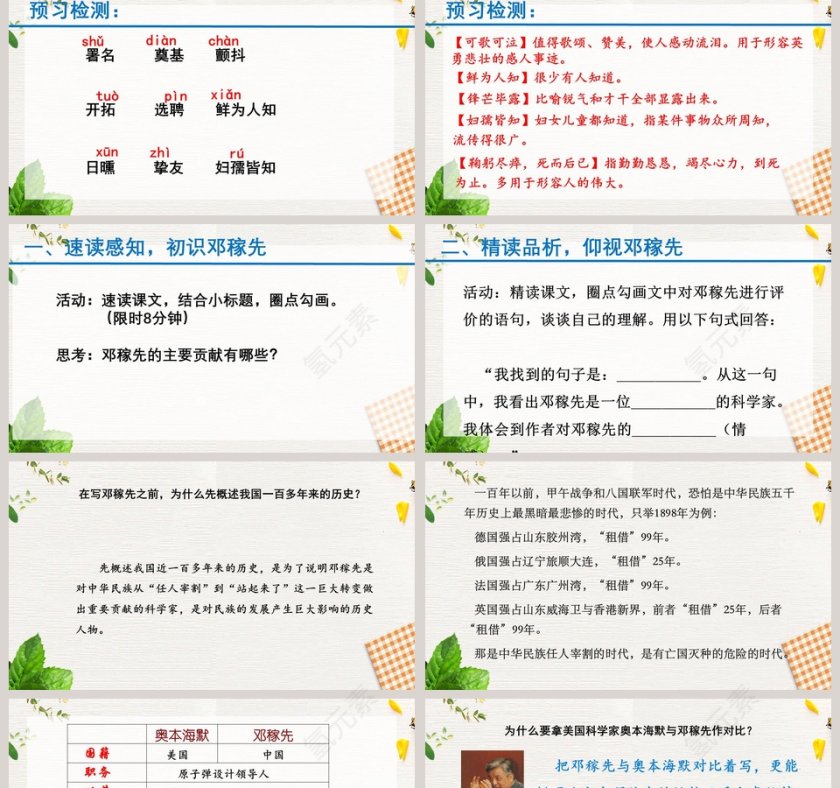 预习检测：
shǔ diàn chàn
署名 奠基 颤抖
tuò pìn xiǎn
开拓 选聘 鲜为人知
xūn zhì rú
日曛 挚友 妇孺皆知
预习检测：
【可歌可泣】值得歌颂、赞美，使人感动流泪。用于形容英
勇悲壮的感人事迹。
【鲜为人知】很少有人知道。
【锋芒毕露】比喻锐气和才干全部显露出来。
【妇孺皆知】妇女儿童都知道，指某件事物众所周知，
流传得很广。
【鞠躬尽瘁，死而后已】指勤勤恳恳，竭尽心力，到死
为止。多用于形容人的伟大。
一、速读感知，初识邓稼先
活动：速读课文，结合小标题，圈点勾画。
（限时8分钟）
思考：邓稼先的主要贡献有哪些？
氢元素
二、精读品析，仰视邓稼先
活动：精读课文，圈点勾画文中对邓稼先进行评
价的语句，谈谈自己的理解。用以下句式回答：
“我找到的句子是：___________。从这一句
中，我看出邓稼先是一位___________的科学家。
我体会到作者对邓稼先的___________（情
氢元素
在写邓稼先之前，为什么先概述我国一百多年来的历史？
先概述我国近一百多年来的历史，是为了说明邓稼先是
对中华民族从“任人宰割”到“站起来了”这一巨大转变做
出重要贡献的科学家，是对民族的发展产生巨大影响的历史
人物。
一百年以前，甲午战争和八国联军时代，恐怕是中华民族五千
年历史上最黑暗最悲惨的时代，只举1898年为例：
德国强占山东胶州湾，“租借”99年。
俄国强占辽宁旅顺大连，“租借”25年。
法国强占广东广州湾，“租借”99年。
英国强占山东威海卫与香港新界，前者“租借”25年，后者
“租借”99年。
那是中华民族任人宰割的时代，是有亡国灭种的危险的时代。
奥本海默 邓稼先
国籍 美国 中国
职务 原子弹设计领导人
氢元素
为什么要拿美国科学家奥本海默与邓稼先作对比？
把邓稼先与奥本海默对比着写，更能
氢元素